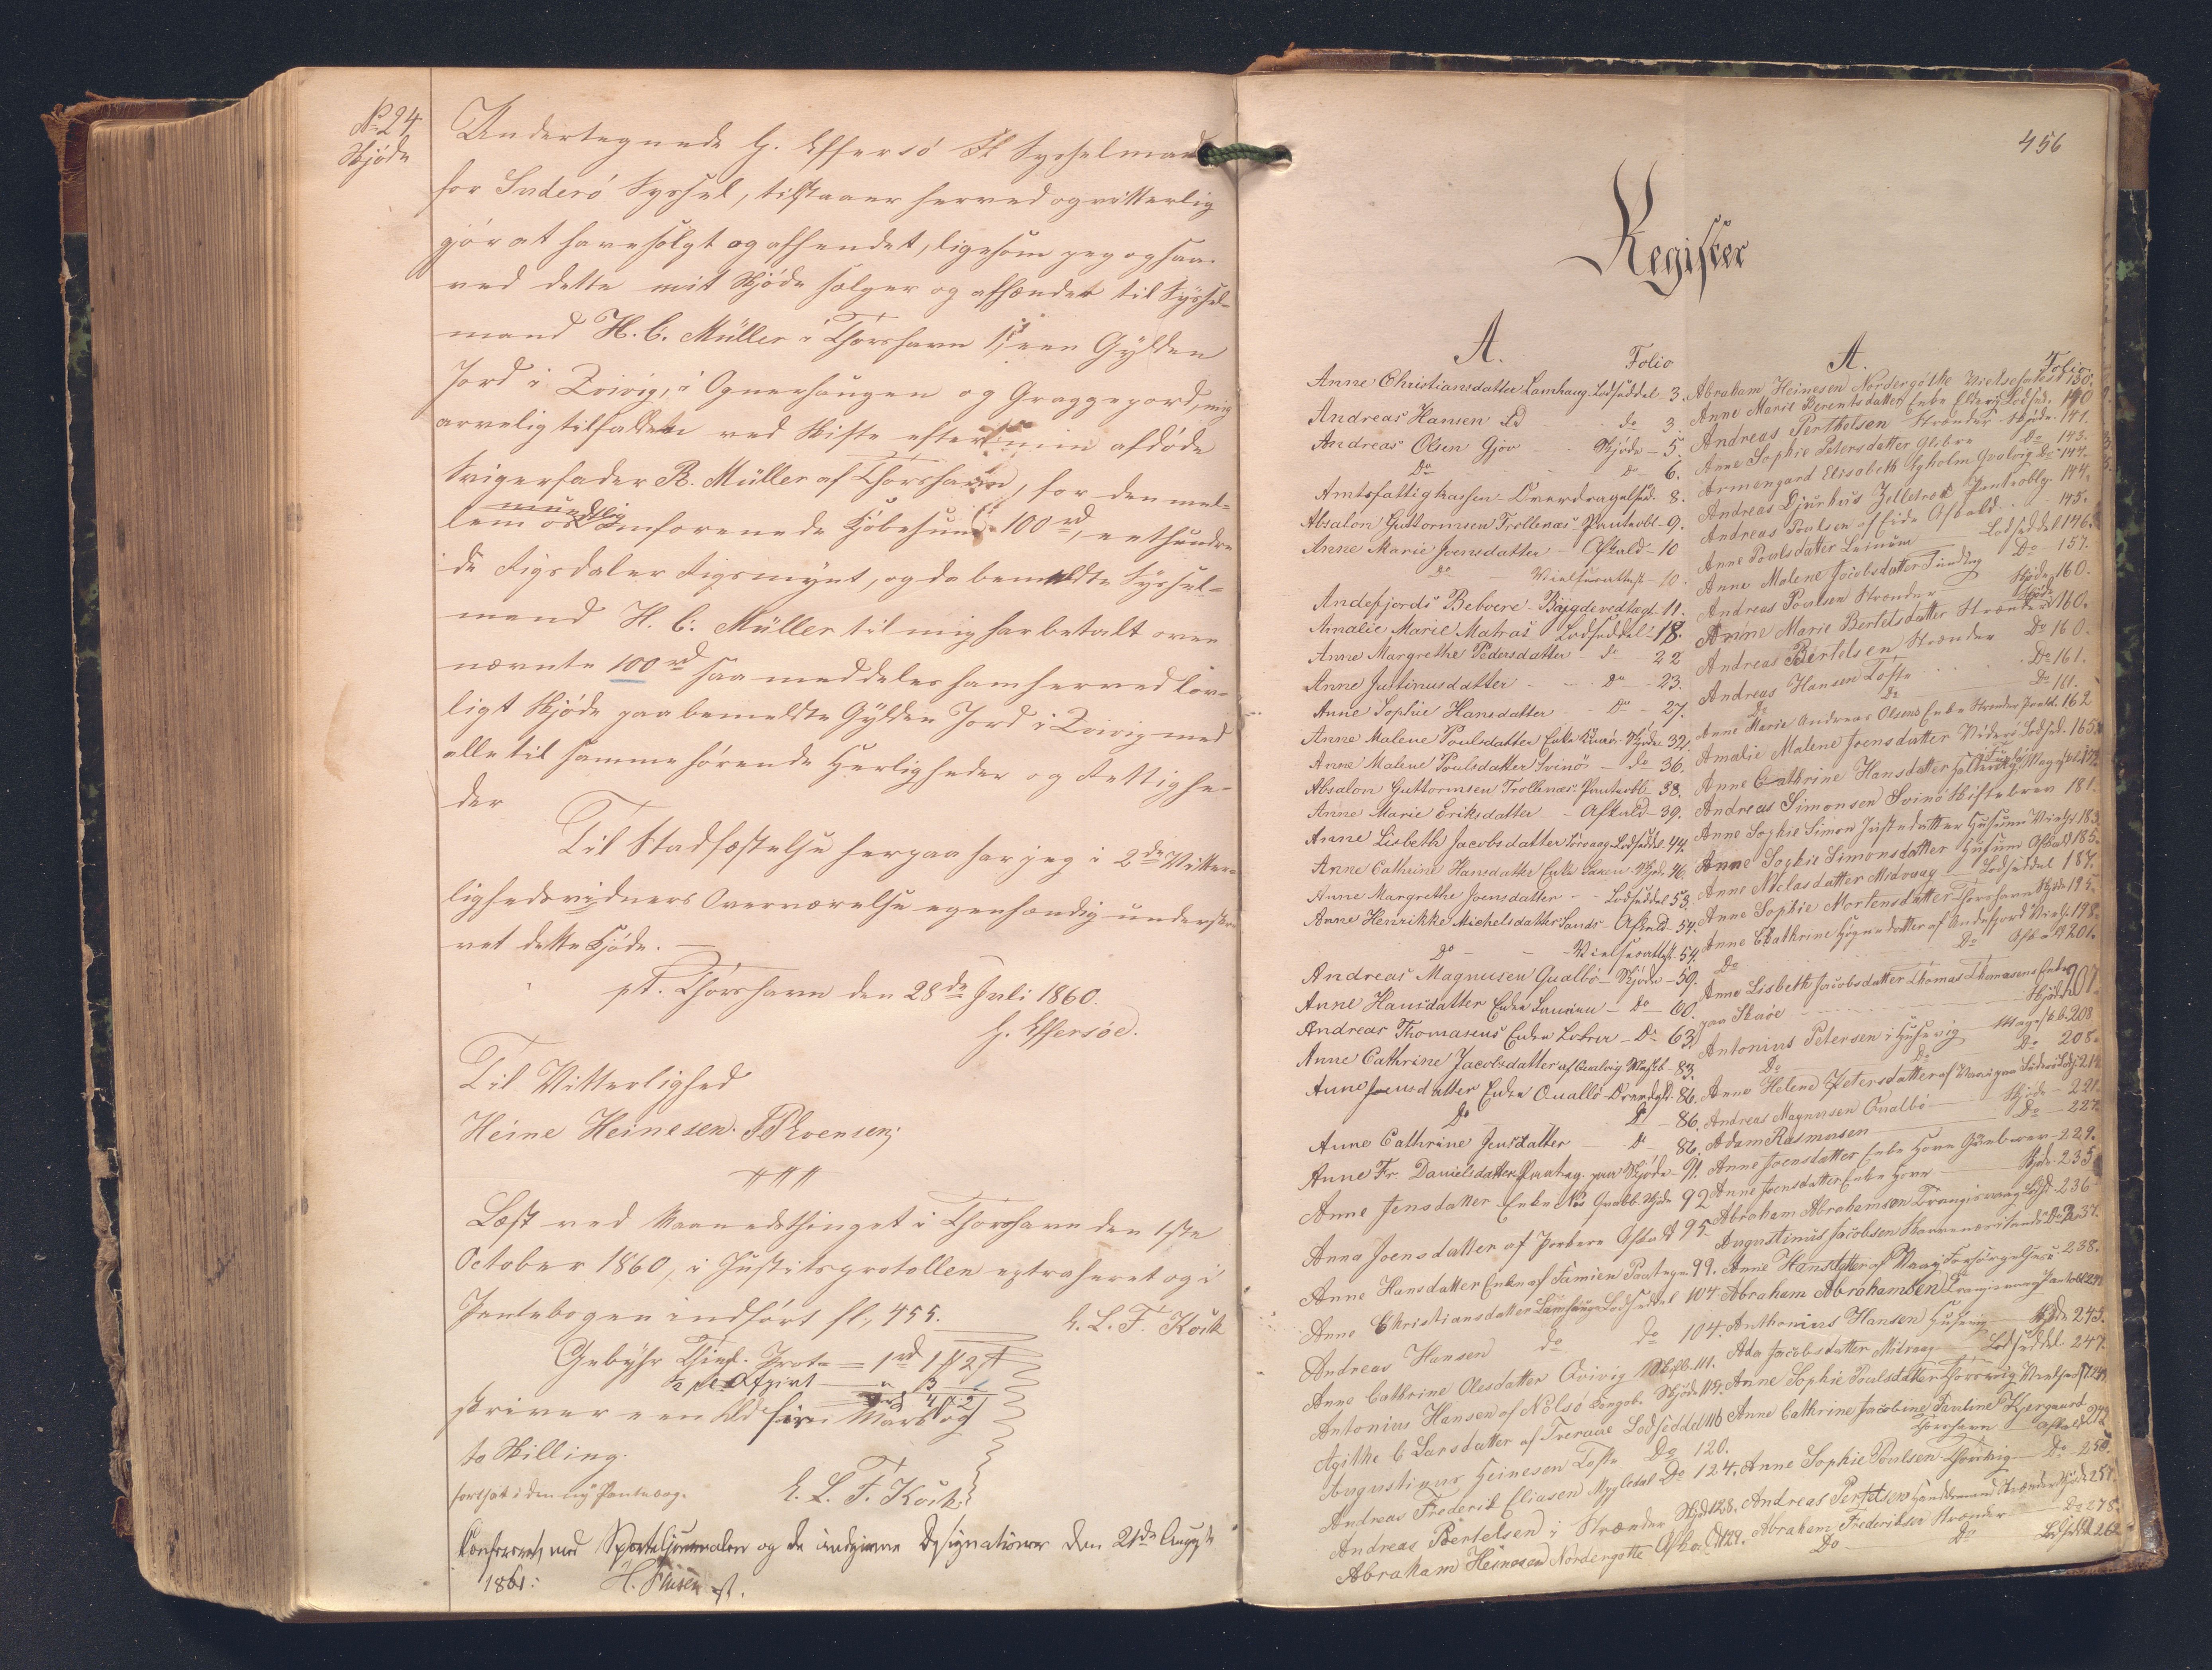 No 24
Skjöde
Undertegnede G. Effersö Fl Sysselmand
for Suderö Syssel, tilstaaer herved og vitterlig
gjör at have solgt og afhendet, ligesom jeg ogsaa
ved dette mit Skjöde sælger og afhænder til Syssel-
mand H. C. Müller i Thorshavn 1, een Gylden
Jord i Qvivig, i Ognerhaugen og mig
arvelig tilfalden ved Skifte efter min afdöde
Svigerfader R. Müller af Thorshavn, for den mel-
lem os mundtlig omforenede Kjöbesum 100 rd, eethundre
de Rigsdaler Rigsmynt, og da bemeldte Syssel-
mand H. C. Müller til mig har betalt oven
nævnte 100 rd saa meddeles ham herved lov-
ligt Skjöde paa bemeldte Gylden Jord i Qvivig med
alle til samme hörende Herligheder og Rettighe-
der
Til Stadfæstelse herpaa har jeg i 2de Vitter-
lighedsvidners Overværelse egenhændig underskre
vet dette Skjöde. —
pt. Thorshavn den 28de Juli 1860.
G. Effersöe.
Til Vitterlighed
Heine Heinesen. Evensen
Læst ved Maanedsthinget i Thorshavn den 1ste
October 1860, i Justitsprotollen extraheret og i
Pantebogen indfört fl, 455.
E. L. F. Koch
Gebyhr Thing. Prot. = 1rd 1 ß 2
½ pC Afgivt 3
4 ß 2
skriver een Rd fire Mark og
to Skilling.
fortsat i den ny Pantebog.
E. L. F. Koch
Confereret med Sporteljournalen og de indgivne Designationer den 21de August
1861:
456
Register
A. Folio
Anne Christiansdatter Lamhauge Lodseddel 3.
Andreas Hansen do do 3.
Andreas Olsen Gjov - Skjöde - 5.
Do do 6.
Amtsfattigkassen - Overdragelsed. 8.
Absalon Guttormsen Trollenæs Panteobl - 9.
Anne Marie Joensdatter - Afkald - 10
do - Vielseattest - 10.
Andefjords Beboere - Bÿgdevedtægt - 11.
Amalie Marie Matras Lodseddel - 18.
Anne Margrethe Pedersdatter do - 22
Anne Justinusdatter - Do - 23.
Anne Sophie Hansdatter - Do - 27.
Anne Malene Poulsdatter Enke Skjöde 32.
Anne Malene Poulsdatter Svinö - do - 36.
Absalon Guttormsen Trollenæs Panteobl 38.
Anne Marie Eriksdatter - Afkald - 39.
Anne Lisbeth Jacobsdatter Sörvaag Lodseddel - 44.
Anne Cathrine Hansdatter Enke Saxen Skjöde 46.
Anne Margrethe Joensdatter - Lodseddel 53.
Anne Henrikke Michelsdatter Sands - Afkald - 54.
Do - Vielseattest 54.
Andreas Magnusen Qualbö - Skjöde - 59.
Anne Hansdatter Enke - Do - 60.
Andreas Thomasens Enke - Do 63.
Anne Cathrine Jacobsdatter af Qvalvig 83.
Anne Joensdatter Enke Quallö 86.
Do Do - 86.
Anne Cathrine Jensdatter - Do - 86.
Anne Fr. Danielsdatter paa Skjöde - 91.
Anne Jensdatter Enke Næs Qualb. Skjöde 92
Anna Joensdatter af Porkere Afkald 95
Anne Hansdatter Enke af Famien 99.
Anne Christiansdatter Lamhauge Lodseddel 104.
Andreas Hansen do do 104.
Anne Cathrine Olesdatter Qvivig 111.
Antonius Hansen af Nolsö Skjöde 115.
Agithe C Larsdatter af Lodseddel 116
Augustinus Heinesen Tofte Do 120.
Andreas Frederik Eliasen Mygledal Do 124.
Andreas Bertelsen i Strænder Skjöde 128.
Abraham Heinesen Nordergötte Afkald 129.
A. Folio.
Abraham Heinesen Nordergötte Vielseattest 130.
Anne Marie Berentsdatter Enke Lodsed. 140
Andreas Perthelsen Strænder Skjöde 141.
Anne Sophie Petersdatter Glibre Do 143.
Armengard Elisabeth Egholm Qvalvig Do 144.
Andreas Djurhuus Zelletræd Panteoblg. 144.
Andreas Poulsen af Eide Afkald 145.
Anne Poulsdatter Leinum Lodseddel 146.
Anne Malene Jacobsdatter Funding Do 157.
Andreas Poulsen Strænder Skjöde 160.
Anne Marie Bertelsdatter Strænder Skjöde 160.
Andreas Bertelsen Strænder Do 160.
Andreas Hansen Tofte Do 161.
Do Do Do 161.
Anne Marie Andreas Olsens Enke Strænder 162
Amalie Malene Joensdatter Viderö Lodsed. 165.
Anne Cathrine Hansdatter
Andreas Simonsen Svinö Skiftebrev 181.
Anne Sophie Simon Justsdatter Husum 183
Anne Sophie Simonsdatter Husum Afkald 185.
Anne Niclasdatter Midvaag Lodseddel 187.
Anne Sophie Mortensdatter Thorshavn Skjöde 195.
Anne Cathrine Hognesdatter af Andefjord 198.
Do Do Afkald 201.
Anne Lisbeth Jacobsdatter Thomas Thomasens Enke
paa Skuöe Skjöde 207.
Antonius Petersen i Husevig 208.
Do Do Do 208.
Anne Helene Petersdatter af Waag paa Suderö 214
Andreas Magnussen Qualbö Skjöde - 221.
Adam Rasmussen Do - 227.
Anne Joensdatter Enke Hove Gavebrev - 229.
Anne Joensdatter Enke Hove Skjöde 235
Abraham Abrahamsen Trangisvaag 236
Augustinus Jacobsen Skarvenæs Sands Do 237.
Anne Hansdatter af Waag 238.
Abraham Abrahamsen Trangisvaag
Anthonius Hansen Husevig Skjöde 245.
Ada Jacobsdatter Midvaag Lodseddel 247.
Anne Sophie Poulsdatter Thorsvig
Anne Cathrine Jacobine Pauline Kjergaard
Thorshavn Afkald
Anne Sophie Poulsen Thorsvig Do 250.
Andreas Pertelsen Strænder Skjöde 257.
Abraham Frederiksen Strænder Do 278.
Do Do Lodseddel 262